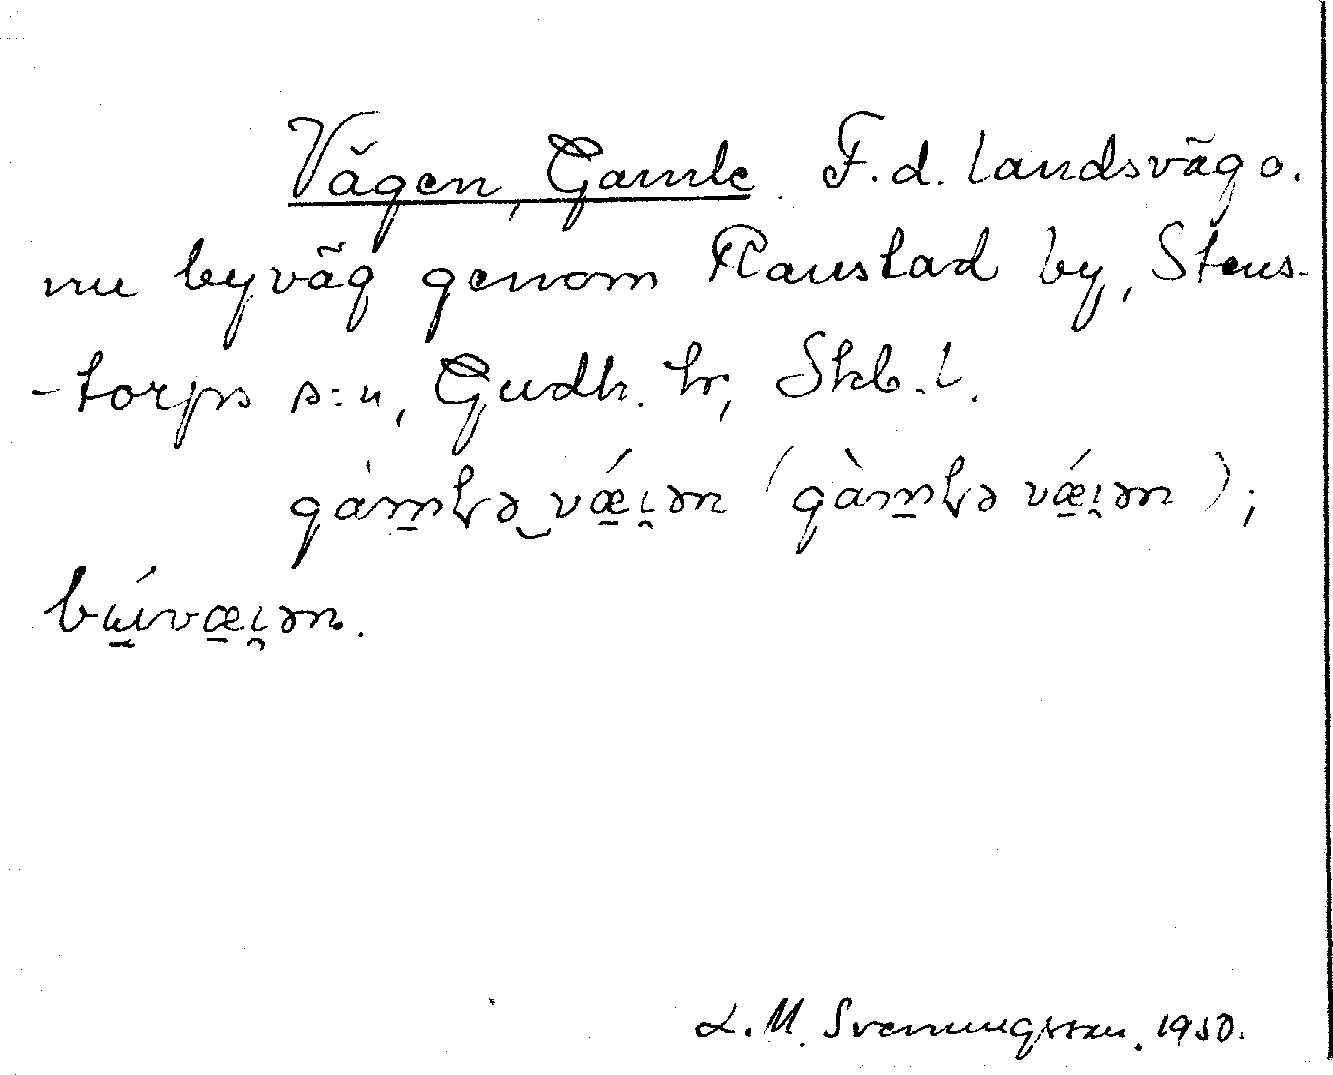 Vägen, Gamle F.d. landsväg o.
nu byväg genom Raustad by, Stens-
-torps s:n, Gudh. hr, Skb. l.
gàm̠ɫə‿vǽ̠ı̯ən (gàm̠ɫə vǽ̠ı̯ən);
bɯ̠́væ̠ı̯ən.
L. M. Svenningsson. 1950.